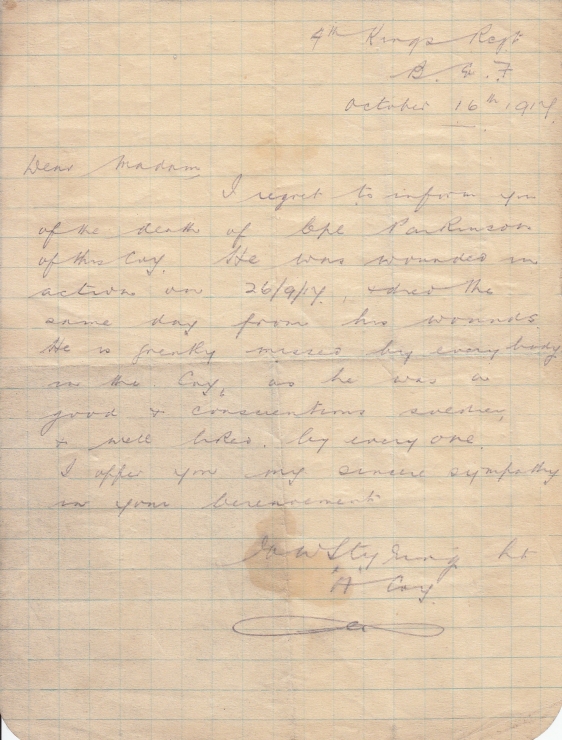 4th Kings Regt
B. E. F
October 16th 1917.
Dear Madam,
I regret to inform you
of the death of Cpl Parkinson
of this Coy. He was wounded in
action on 26/9/17, & died the
same day from his wounds.
He is greatly missed by everybody
in the Coy, as he was a
good & conscientious soldier,
& well liked by every one.
I offer you my sincere sympathy
in your bereavement
Lt
"A" Coy